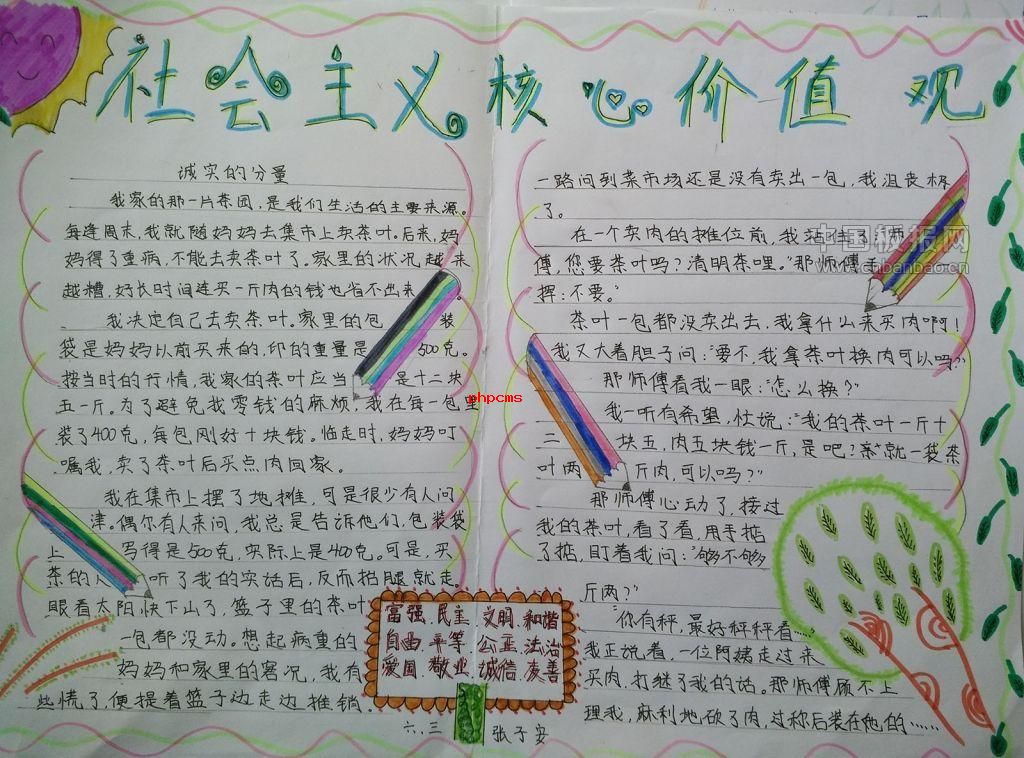 社会主义核心价值观
诚实的分量
我家的那一片茶园，是我们生活的主要来源。
每逢周末，我就随妈妈去集市上卖茶叶。后来，妈
妈得了重病，不能去卖茶叶了。家里的状况越来
越糟，好长时间连买一斤肉的钱也省不出来。
我决定自己去卖茶叶。家里的包装
袋是妈妈以前买来的，印的重量是500克。
按当时的行情，我家的茶叶应当是十二块
五一斤。为了避免找零钱的麻烦，我在每一包里
装了400克，每包刚好十块钱。临走时，妈妈叮
嘱我，卖了茶叶后买点肉回家。
我在集市上摆了地摊，可是很少有人问
津。偶尔有人来问，我总是告诉他们，包装袋
上写得是500克，实际上是400克。可是，买
茶的人听了我的实话后，反而抬腿就走。
眼看太阳快下山了，篮子里的茶叶
一包都没动。想起病重的
妈妈和家里的窘况，我有
些慌了，便提着篮子边走边推销。
一路问到菜市场还是没有卖出一包，我沮丧极
了。
在一个卖肉的摊位前，我站住了
傅，您要茶叶吗？清明茶哩。”那师傅手
挥：不要。”
茶叶一包都没卖出去，我拿什么来买肉啊！
我又大着胆子问：“要不，我拿茶叶换肉可以吗？”
那师傅看我一眼：“怎么换？”
我一听有希望，忙说：“我的茶叶一斤十
二块五，肉五块钱一斤，是吧？就一袋茶
叶两斤肉，可以吗？”
那师傅心动了，接过
我的茶叶，看了看，用手掂
了掂，盯着我问：“够不够
斤两？”
“你有秤，最好秤秤看……”
我正说着，一位阿姨走过来
买肉，打继了我的话。那师傅顾不上
理我，麻利地砍了肉，过称后装在她的……
富强、民主、文明、和谐
自由、平等、公正、法治
爱国、敬业、诚信、友善
六.三 张子安
phpcms
中国板报网
www.cnbanbao.cn